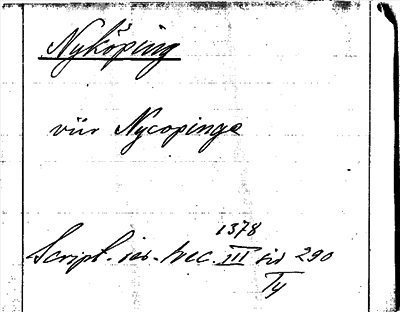 Nyköping
vür Nycopinge
1378
Script. ias. svec. III sid 290
Ty